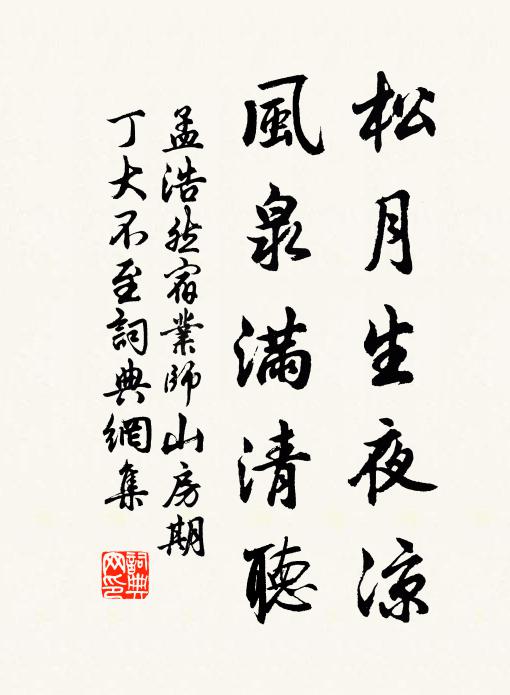 松月生夜涼
風泉滿清聽
孟浩然宿業師山房期
丁大不至詞典網集
詞典
网印